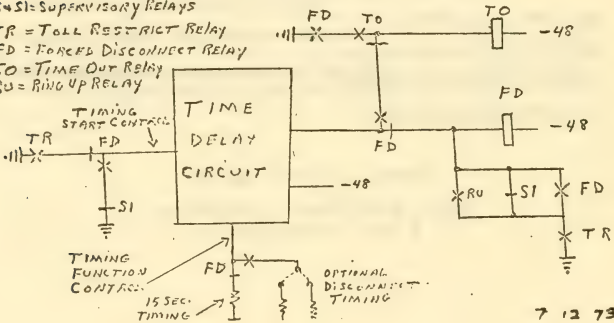 S+SI=SUPERVISORY RELAYS
TR = TOLL RESTRICT RELAY
FD = FORCED DISCONNECT RELAY
TO = TIME OUT RELAY
RU = RING UP RELAY
FD
TO
TO
-48
FD
-48
TIMING
START CONTROL
TIME
DELAY
CIRCUIT
TR
FD
FD
-48
SI
RU
SI
FD
TR
TIMING
FUNCTION
CONTROL
FD
15 SEC.
TIMING
OPTIONAL
DISCONNECT
TIMING
7 12 73